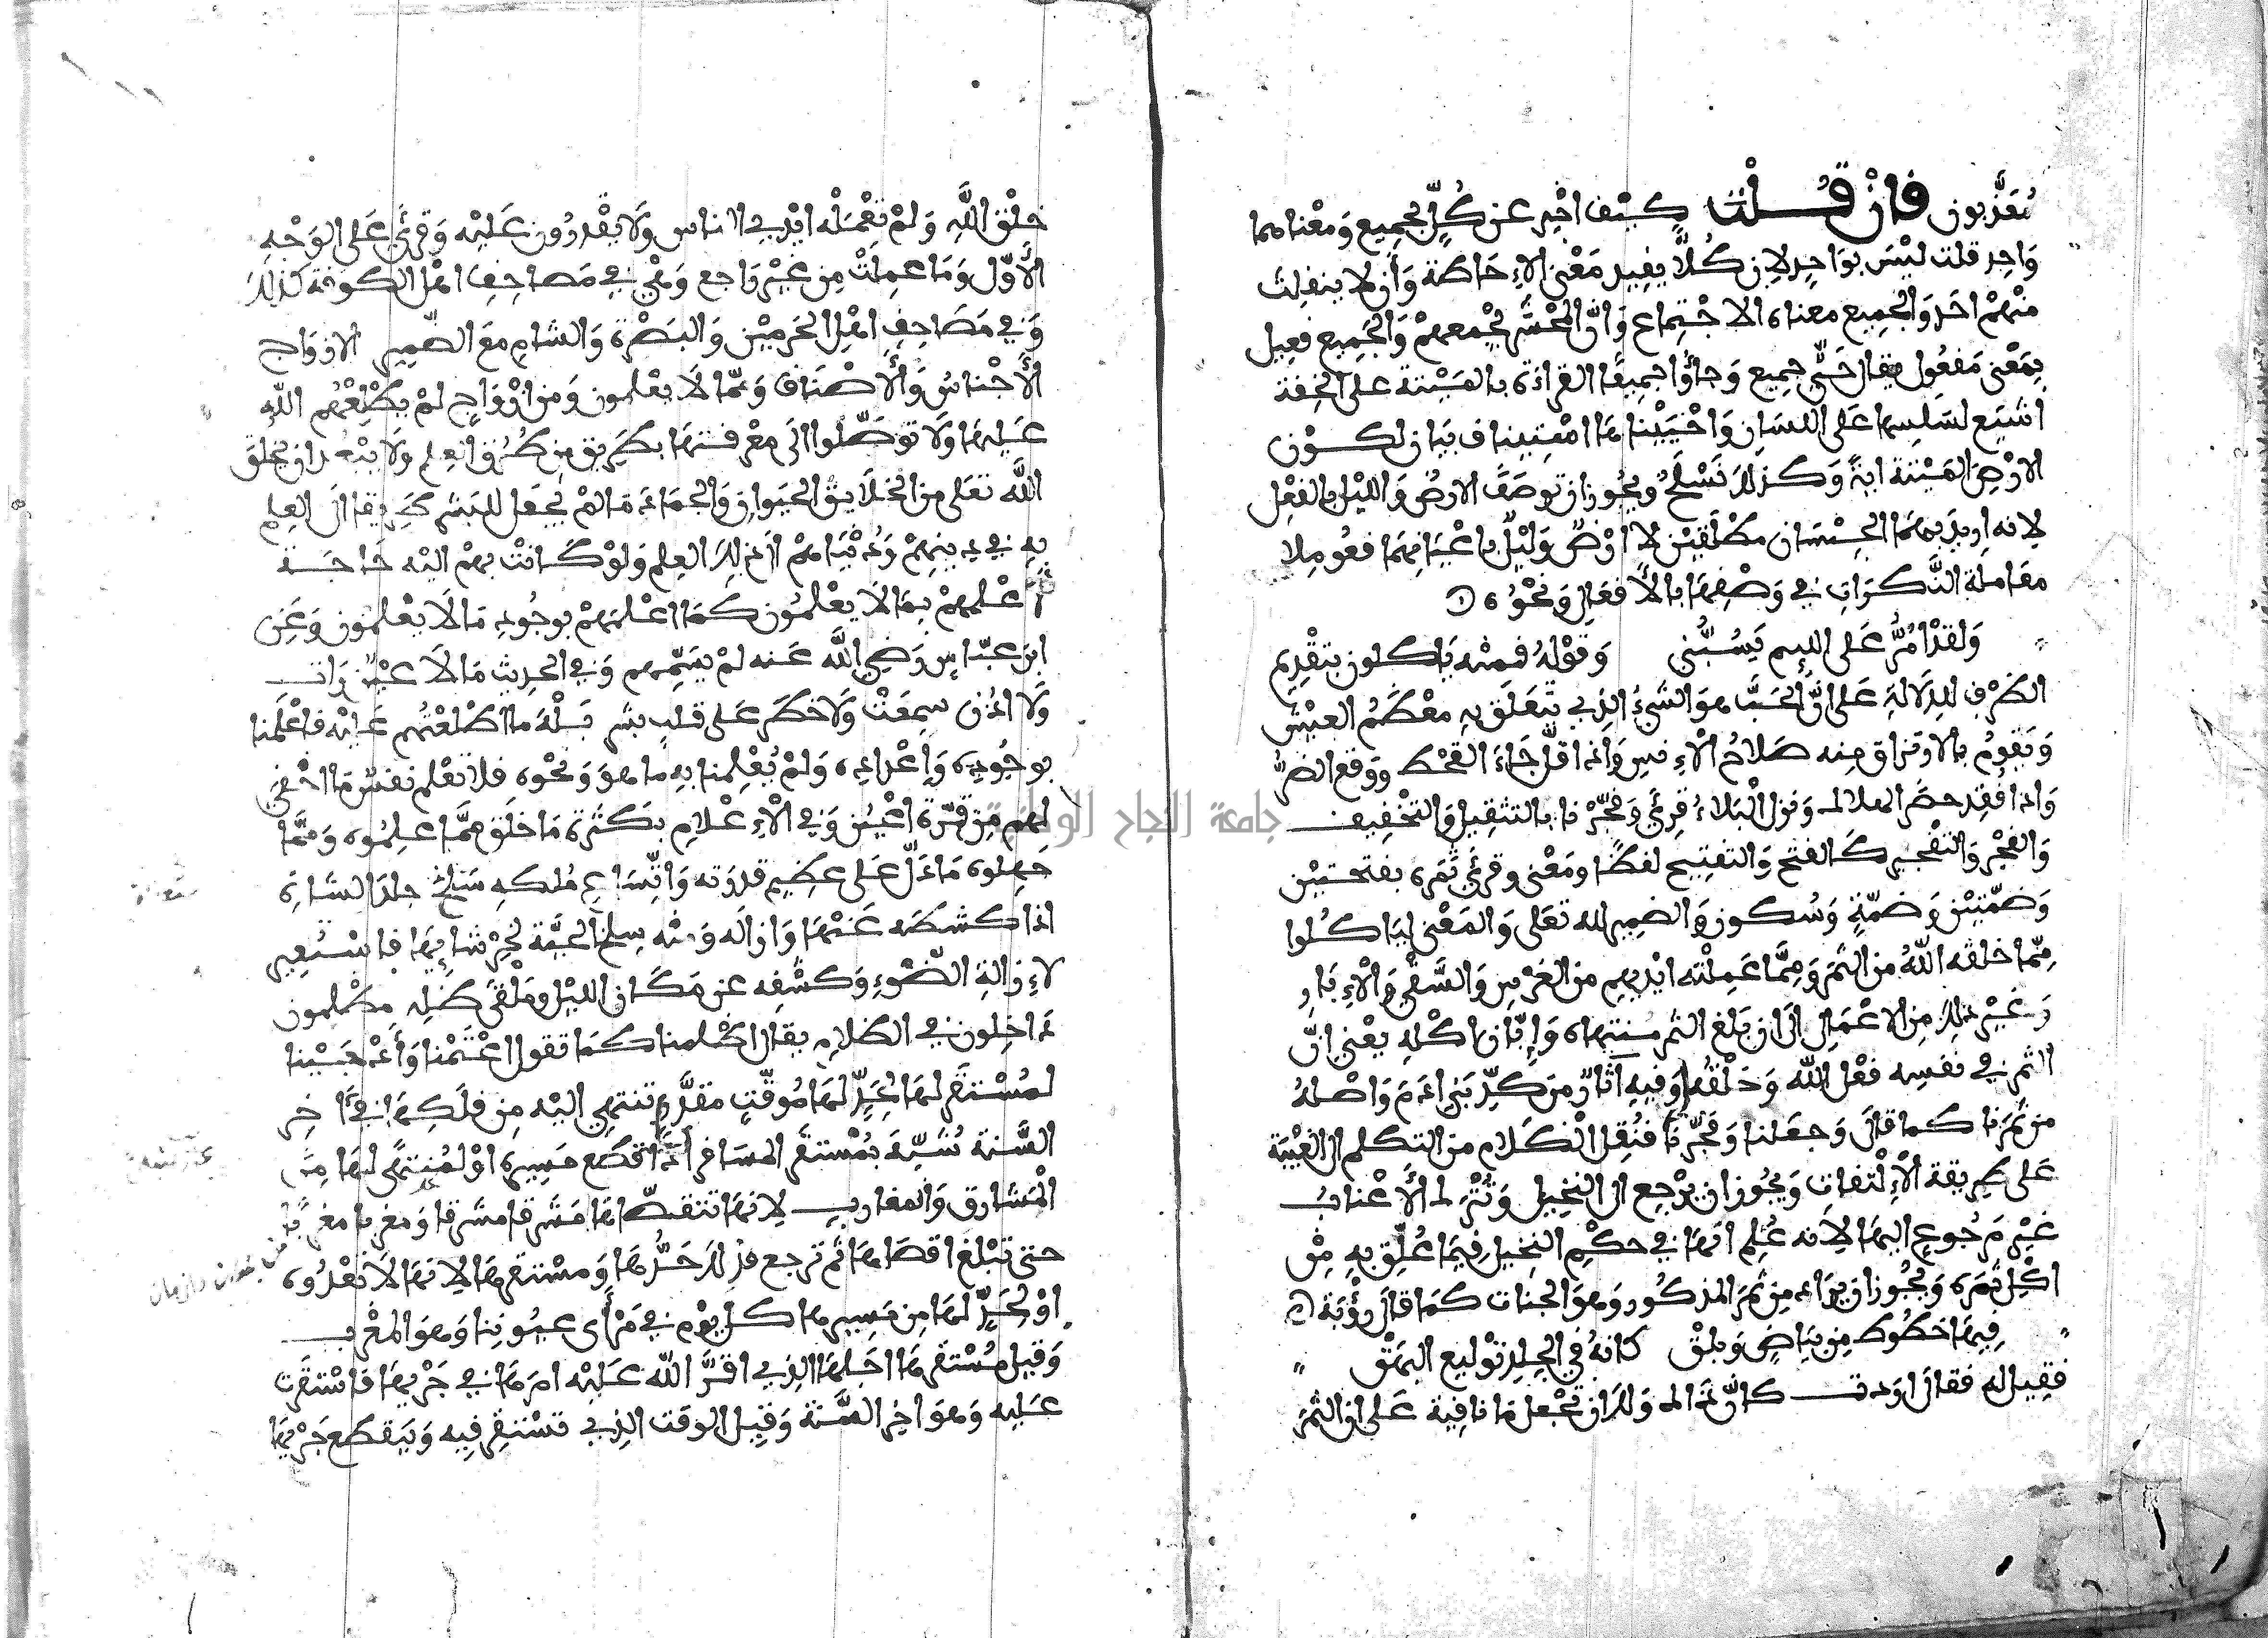 معذبون فان قلت كيف اخبر عن كل بجميع ومعناهما
واحد قلت ليس بواحد لان كلا يفيد معنى الاحاطة وأن لا ينفلت
منهم احد والجميع معناه الاجتماع وان المحشر يجمعهم والجميع فعيل
بمعنى مفعول يقال حي جميع وجاؤا جميعا القراءة بالميتة على الخفة
اشيع لسلسها على اللسان واحييناها استيناف بيان لكون
الارض الميتة اية وكذلك نسلخ ويجوز ان توصف الارض والليل بالفعل
لانه اريد بهما الجنسان مطلقين لا ارض وليل باعيانهما فعوملا
معاملة النكرات في وصفهما بالافعال ونحوه
ولقد امر على الليم يسبني وقوله فمنه ياكلون بتقديم
الظرف للدلالة على ان الحب هو الشيء الذي تتعلق به معظم العيش
ويقوم بالارتزاق منه صلاح الانس واذا قل جاء القحط ووقع الضر
واذا فقد حضر الهلاك ونزل البلاء قرئ وفجرنا بالتثقيل والتخفيف
والفجر والتفجير كالفتح والتفتيح لفظا ومعنى وقرئ ثمره بفتحتين
وضمتين وضمة وسكون والضمير لله تعلى والمعنى لياكلوا
مما خلقه الله من الثمر ومما عملته ايديهم من الغرس والسقي والابار
وغير ذلك من الاعمال الى ان بلغ الثمر منتهاه وابان اكله يعني ان
الثمر في نفسه فعل الله وخلقه وفيه اثار من كد بني ادم واصله
من ثمرنا كما قال وجعلنا وفجرنا فنقل الكلام من التكلم الى الغيبة
على طريقة الالتفات ويجوز ان يرجع الى النخيل وتترك الاعناب
غير مرجوع اليها لانه علم انها في حكم النخيل فيما علق به من
اكل ثمره ويجوز ان يراد من ثمر المذكور وهو الجنات كما قال رؤبة
فيها خطوط من بياض وبلق كانه في الجلد توليع البهق
فقيل له فقال اردت كان ذاك ولك ان تجعل ما نافية على ان الثمر
خلق الله ولم تعمله ايدي الناس ولا يقدرون عليه وقرئ على الوجه
الاول وما عملت من غير راجع وهي في مصاحف اهل الكوفة كذلك
وفي مصاحف اهل الحرمين والبصرة والشام مع الضمير الازواج
الاجناس والاصناف ومما لا يعلمون ومن ازواج لم يطلعهم الله
عليها ولا توصلوا الى معرفتها بطريق من طرق العلم ولا يبعد ان يخلق
الله تعلى من الخلايق الحيوان والجماد ما لم يجعل للبشر طريقا الى العلم
به في دينهم ودنياهم الى ذلك العلم ولو كانت بهم اليه حاجة
لاعلمهم بما لا يعلمون كما اعلمهم بوجود ما لا يعلمون وعن
ابن عباس رضي الله عنه لم يسمهم وفي الحديث ما لا عين رات
ولا اذن سمعت ولا خطر على قلب بشر بله ما اطلعتهم عليه فاعلمنا
بوجوده واعداده ولم يعلمنا به ما هو ونحوه فلا تعلم نفس ما اخفي
لهم من قرة اعين وفي الاعلام بكثرة ما خلق مما علموه ومما
جهلوه ما دل على عظيم قدرته واتساع ملكه سلخ جلد الشاة
اذا كشطه عنها وازاله ومنه سلخ الحية لخرشايها فاستعير
لازالة الضوء وكشفه عن مكان الليل وملقى ظله مظلمون
داخلون في الظلام يقال اظلمنا كما تقول اعتمنا وأدجينا
لمستقر لها لحد لها موقت مقدر تنتهي اليه من فلكها في اخر
السنة شبه بمستقر المسافر اذا قطع مسيره او لمنتهى لها من
المشارق والمغارب لانها تتقصاها مشرقا مشرقا ومغربا مغربا
حتى تبلغ اقصاها ثم ترجع فذلك حدها ومستقرها لانها لا تعدوه
او لحد لها من مسيرها كل يوم في مرأى عيوننا وهو المغرب
وقيل مستقرها اجلها الذي اقر الله عليه امرها في جريها فاستقرت
عليه وهو اخر السنة وقيل الوقت الذي تستقر فيه وينقطع جريها
جامعة النجاح الوطنية